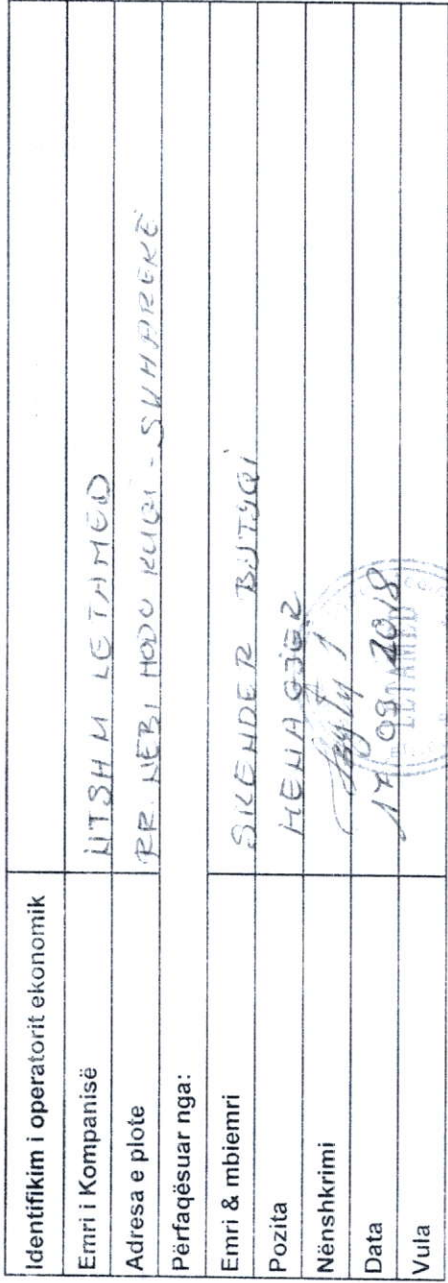 Identifikim i operatorit ekonomik
Emri i Kompanisë NTSH M LETAMED
Adresa e plote RR. NEBI HODO KUQI - SUHAREKË
Përfaqësuar nga:
Emri & mbiemri SKENDER BYTYQI
Pozita MENAGJER
Nënshkrimi
Data 17 09 2018
Vula